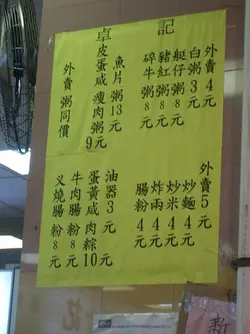 卓記
外賣4元
白粥3元
艇仔粥8元
豬紅粥8元
碎牛粥8元
魚片粥13元
皮蛋咸瘦肉粥9元
外賣粥同價
外賣5元
炒麵4元
炒米4元
炸兩4元
腸粉4元
油器3元
蛋黃咸肉粽10元
牛肉腸粉8元
义燒腸粉8元
新